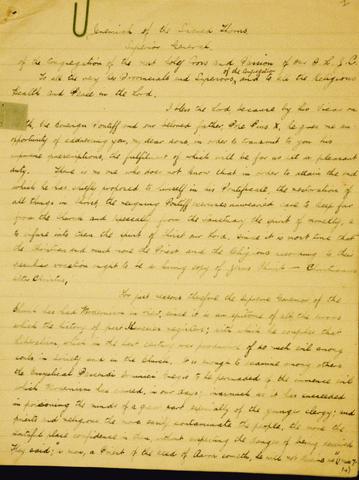 Jeremiah of the Sacred Thorns
Superior General
of the Congregation of the most Holy Cross and Passion of Our B. L. J. C.
of the Congregation
To all the very Rev Provincials and Superiors, and to all the Religious
Health and Peace in the Lord.
I bless the Lord because by his
the Sovereign Pontiff and our beloved father, Pope Pius X, he gives me an
opportunity of addressing you, my dear sons, in order to transmit to you his
supreme prescriptions, the fulfilment of which will be for us all a pleasant
duty. There is no one who does not know that in order to attain the end
which he has wisely proposed to himself in his Pontificate, the restoration of
all things in Christ, the reigning Pontiff unwearied care to keep far
from the and the sanctuary the spirit of novelty, &
to infuse into them the spirit of Christ our Lord. Since it is most true that
the Christian and much more the Priest and the Religious according to their
peculiar vocation ought to be a living copy of Jesus Christ — Christianus
alter Christus.
For just reasons therefore the Supreme Governor of the
Church has had Modernism in view, since it is an epitome of all the errors
which the history of past Heresies registers; with which he couples that
Liberalism, which in the last century was productive of so much evil among
souls in Society and in the Church. It is enough to examine among others
the Encyclical Pascendi Dominici Gregis to be persuaded of the immense evil
which Modernism has caused, in our days; inasmuch as it has succeeded
in poisoning the minds of a great part especially of the younger clergy; and
priests and religious the more easily contaminate the people, the more the
faithful place confidence in them, without suspecting the danger of being
They said; "a man, a Priest of the seed of Aaron cometh, he will not deceive us" (1 Mac 7.
14)